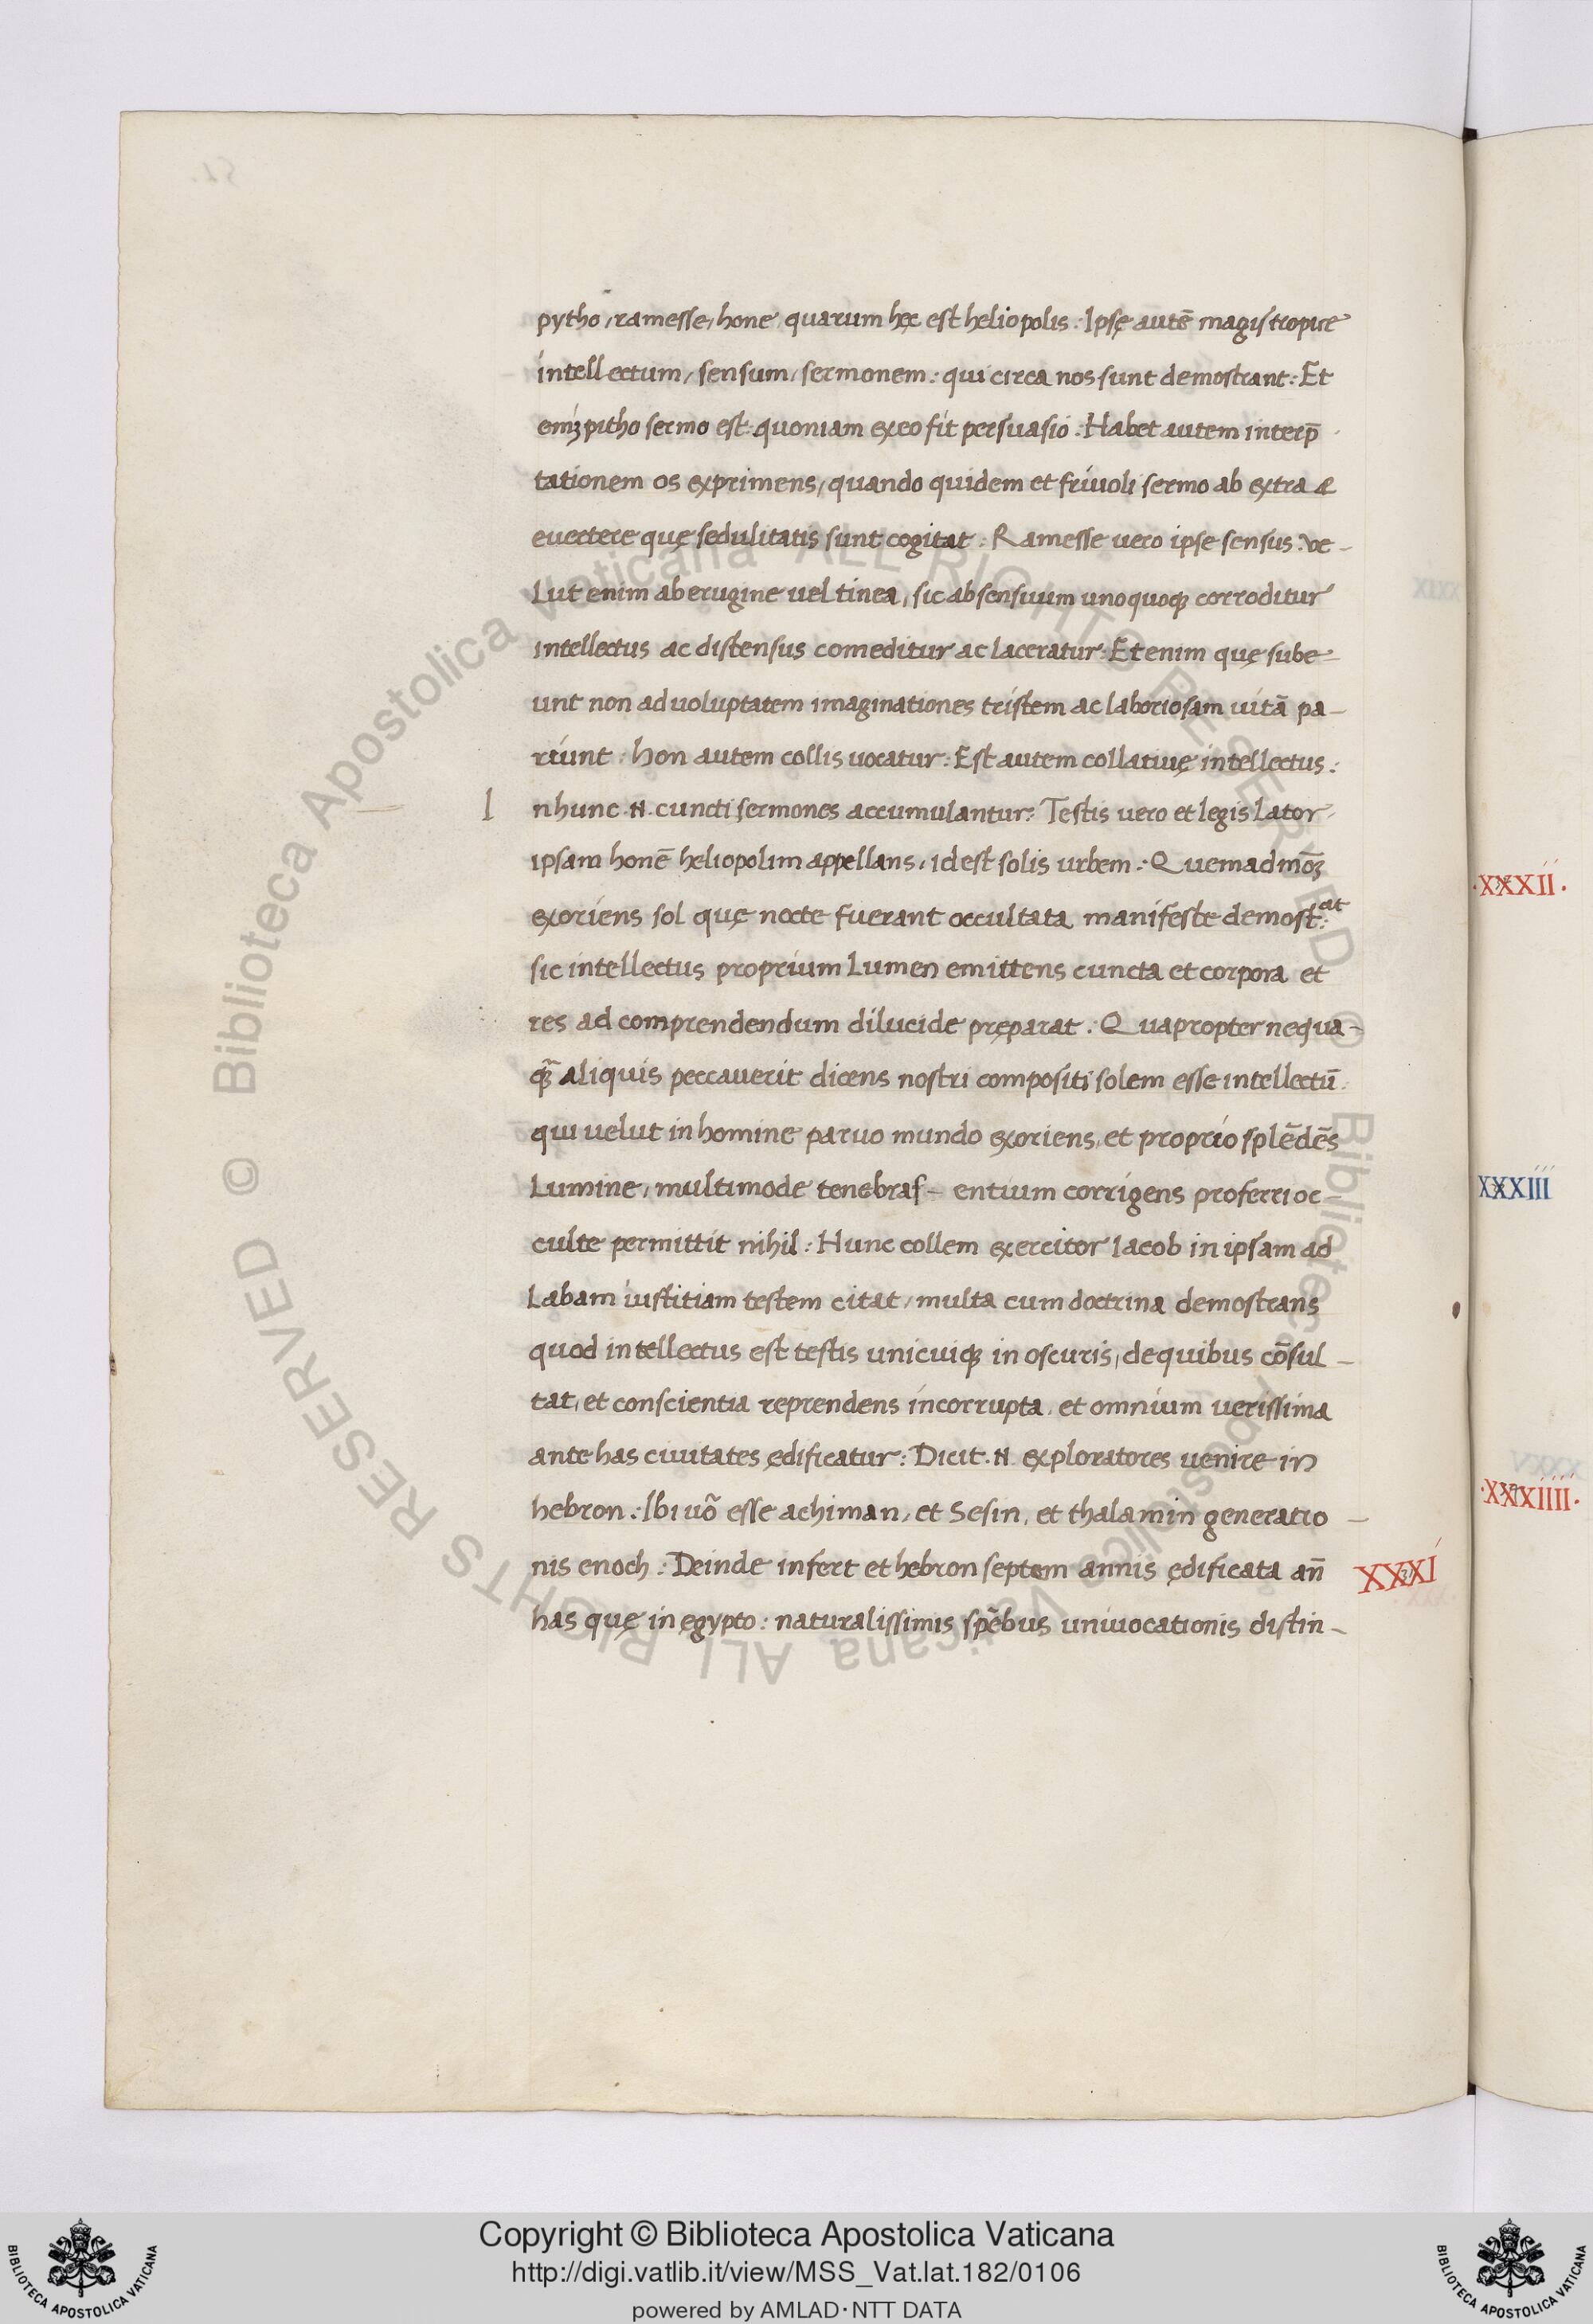 pytho, ramesse, hone, quarum hęc est heliopolis: Ipsę autē magis tropice
intellectum, sensum, sermonem: qui circa nos sunt demostrant: Et
eniʒ pitho sermo est: quoniam ex eo fit persuasio: Habet autem interp̄
tationem os exprimens, quando quidem et friuoli sermo ab extra &
euertere quę sedulitatis sunt cogitat: Ramesse uero ipse sensus: ve-
lut enim ab erugine uel tinea, sic ab sensuum unoquoqȝ corroditur
intellectus ac distensus comeditur ac laceratur: Etenim quę sube-
unt non ad uoluptatem imaginationes tristem ac laboriosam uitā pa-
riunt: hon autem collis uocatur: Est autem collatiuę intellectus:
I nhunc .N. cuncti sermones accumulantur: Testis uero et legislator
ipsam honē heliopolim appellans, id est solis urbem: Quemadmōȝ
exoriens sol quę nocte fuerant occultata manifeste demost:at
sic intellectus proprium lumen emittens cuncta et corpora et
res ad comprendendum dilucide pręparat: Quapropter nequa-
qȝ̄ aliquis peccauerit dicens nostri compositi solem esse intellectū.
qui uelut in homine paruo mundo exoriens, et proprio splēdēs
lumine, multimode tenebras- entium corrigens proferri oc-
culte permittit nihil: Hunc collem exercitor Iacob in ipsam ad
Labam iustitiam testem citat, multa cum doctrina demostrans
quod intellectus est testis unicuiqȝ in oscuris, de quibus cōsul-
tat, et conscientia reprendens incorrupta, et omnium uerissima
ante has ciuitates ędificatur: Dicit .N. exploratores uenire in
hebron: Ibi uō esse achiman, et Sesin, et thalamin generatio-
nis enoch: Deinde infert et hebron septem annis ędificata an̄
XXXI
has quę in ęgypto: naturalissimis spēbus uniuocationis distin-
·XXXII·
XXXIII
·XXXIIII·
© Biblioteca Apostolica Vaticana ALL RIGHTS RESERVED
© Biblioteca Apostolica Vaticana ALL RIGHTS RESERVED
BIBLIOTECA APOSTOLICA VATICANA
Copyright © Biblioteca Apostolica Vaticana
http://digi.vatlib.it/view/MSS_Vat.lat.182/0106
powered by AMLAD·NTT DATA
BIBLIOTECA APOSTOLICA VATICANA